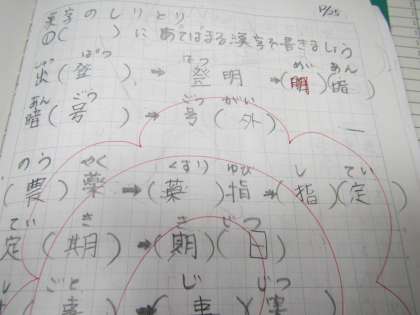 漢字のしりとり 12/25
①( )にあてはまる漢字を書きましょう
ばつ はつ めい あん
出(登)→登明→(明)(暗
あん ごう ごう がい
暗(号)→号(外)
のう やく くすり ゆび し てい
(農)薬→(薬)指→(指)(定
てい き き じつ
定(期)→(期)(日)
ごと じ じつ
事)→(事)(実